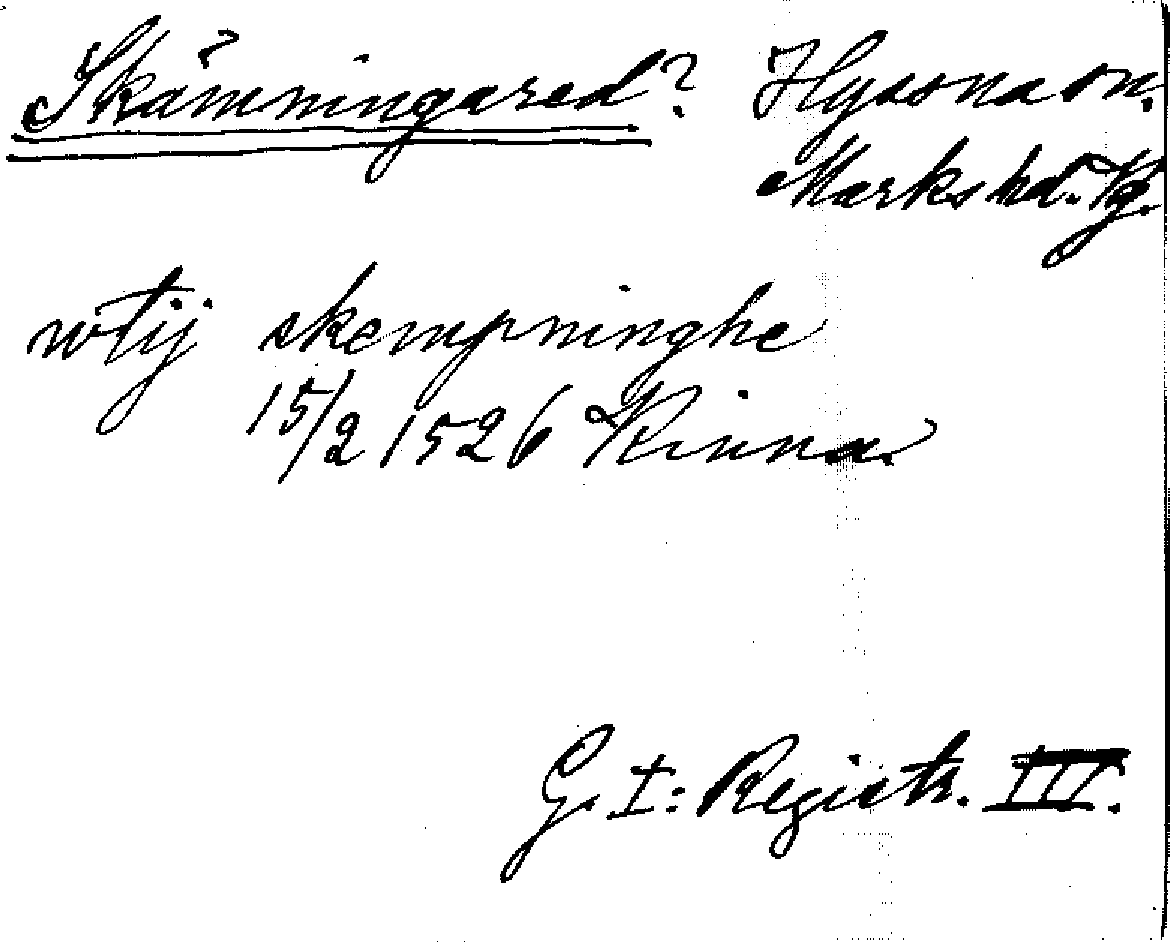 Skämningared? Hyssna sn.
Marks hd. Vg.
wtij skempninghe
15/2 1526 Kinna.
G. I: Registr. III.